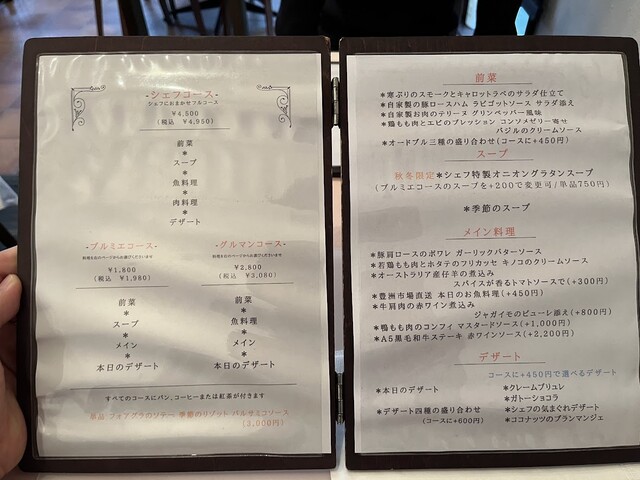 -シェフコース-
シェフにおまかせフルコース
¥4,500
(税込 ¥4,950)
前菜
*
スープ
*
魚料理
*
肉料理
*
デザート
-プルミエコース-
料理を右のページからお選びくださいませ
¥1,800
(税込 ¥1,980)
前菜
*
スープ
*
メイン
*
本日のデザート
-グルマンコース-
料理を右のページからお選びくださいませ
¥2,800
(税込 ¥3,080)
前菜
*
魚料理
*
メイン
*
本日のデザート
すべてのコースにパン、コーヒーまたは紅茶が付きます
単品 フォアグラのソテー 季節のリゾット バルサミコソース
(3,000円)
前菜
*寒ぶりのスモークとキャロットラペのサラダ仕立て
*自家製の豚ロースハム ラビゴットソース サラダ添え
*自家製お肉のテリーヌ グリンペッパー風味
*鶏もも肉とエビのプレッション コンソメゼリー寄せ
バジルのクリームソース
*オードブル三種の盛り合わせ(コースに+450円)
スープ
秋冬限定*シェフ特製オニオングラタンスープ
(プルミエコースのスープを+200で変更可/単品750円)
*季節のスープ
メイン料理
*豚肩ロースのポワレ ガーリックバターソース
*若鶏もも肉とホタテのフリカッセ キノコのクリームソース
*オーストラリア産仔羊の煮込み
スパイスが香るトマトソースで(+300円)
*豊洲市場直送 本日のお魚料理(+450円)
*牛肩肉の赤ワイン煮込み
ジャガイモのピューレ添え(+800円)
*鴨もも肉のコンフィ マスタードソース(+1,000円)
*A5黒毛和牛ステーキ 赤ワインソース(+2,200円)
デザート
コースに+450円で選べるデザート
*本日のデザート
*デザート四種の盛り合わせ
(コースに+600円)
*クレームブリュレ
*ガトーショコラ
*シェフの気まぐれデザート
*ココナッツのブランマンジェ